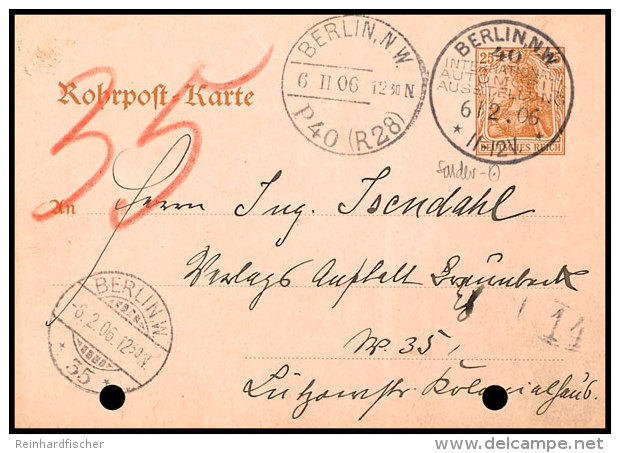 BERLIN, N.W.
6 II 06 12 30 N
P40 (R28)
BERLIN, N.W.
40
INTERNATION.
AUTOMOBIL
AUSSTELLUNG
6/2. 06
* 11-12V *
25
DEUTSCHES REICH
Rohrpost-Karte
35
Sonder-O
An Herrn Ing. Isendahl
Verlags Anstalt
BERLIN. W
6.2.06. 12
* 35 *
11
W. 35,
Lützowstr. Kolonialhaus.
Reinhardfischer
delcampe.net